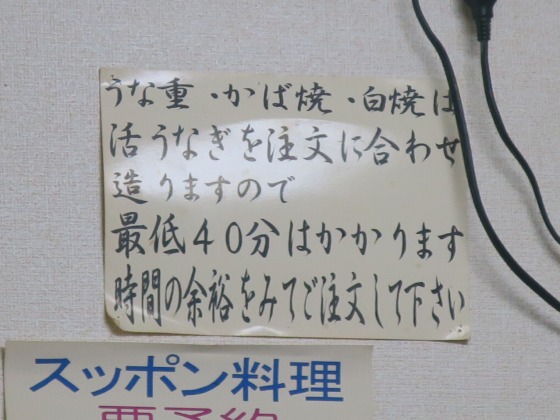 うな重・かば焼・白焼は
活うなぎを注文に合わせ
造りますので
最低40分はかかります
時間の余裕をみてご注文して下さい
スッポン料理
要予約